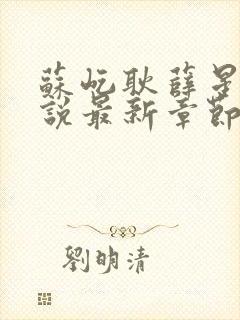 蘇屹耿薛星
說最新章節
劉明清